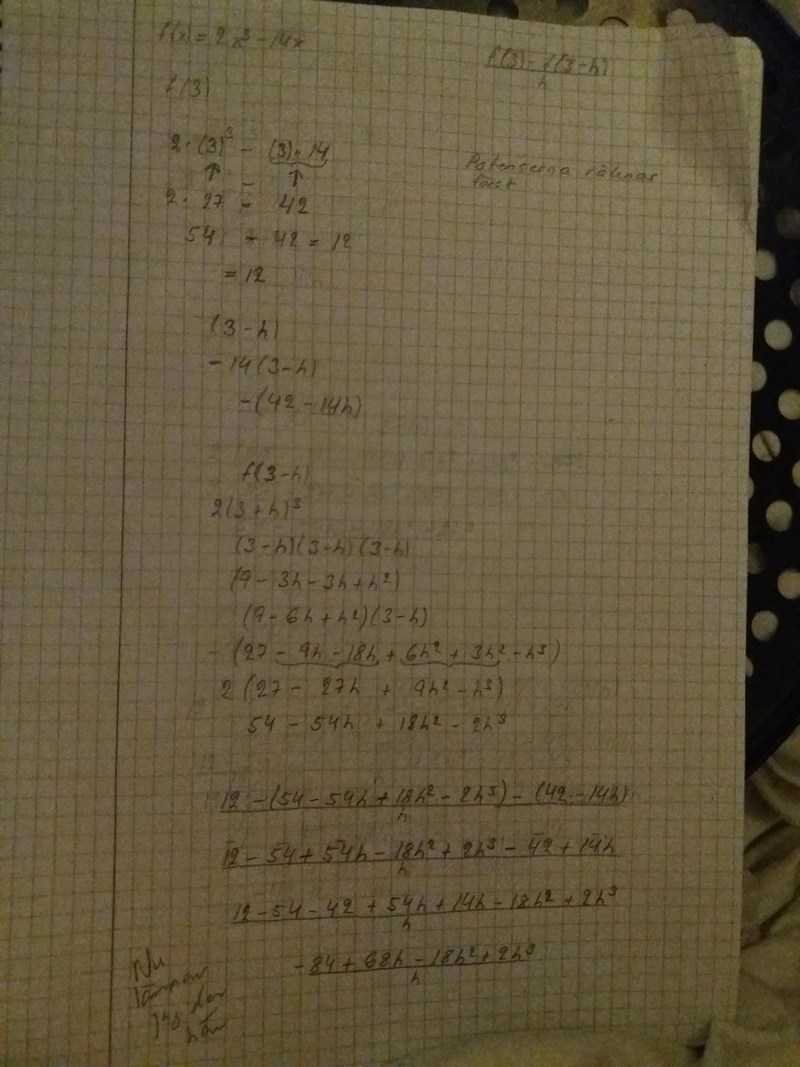 f(x) = 2x³ - 14x
f(3) - f(3-h)
h
f(3)
2 · (3)³ - (3) · 14
Potenserna räknas
först
↑ - ↑
2 · 27 - 42
54 - 42 = 12
= 12
(3 - h)
- 14 (3 - h)
- (42 - 14h)
f(3 - h)
2(3 + h)³
(3 - h)(3 - h)(3 - h)
(9 - 3h - 3h + h²)
(9 - 6h + h²)(3 - h)
- (27 - 9h - 18h + 6h² + 3h² - h³)
2 (27 - 27h + 9h² - h³)
54 - 54h + 18h² - 2h³
12 - (54 - 54h + 18h² - 2h³) - (42 - 14h)
h
12 - 54 + 54h - 18h² + 2h³ - 42 + 14h
h
12 - 54 - 42 + 54h + 14h - 18h² + 2h³
h
- 84 + 68h - 18h² + 2h³
h
Nu
lämnar
jag den
här